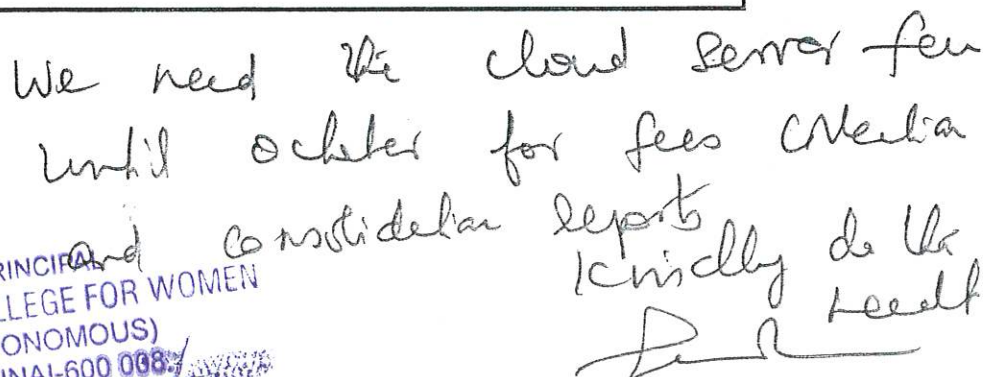 We need the cloud server few
until october for fees collection
and consolidation reports
Kindly do the
needf
RINCIPAL
LLEGE FOR WOMEN
ONOMOUS)
NNAI-600 008.